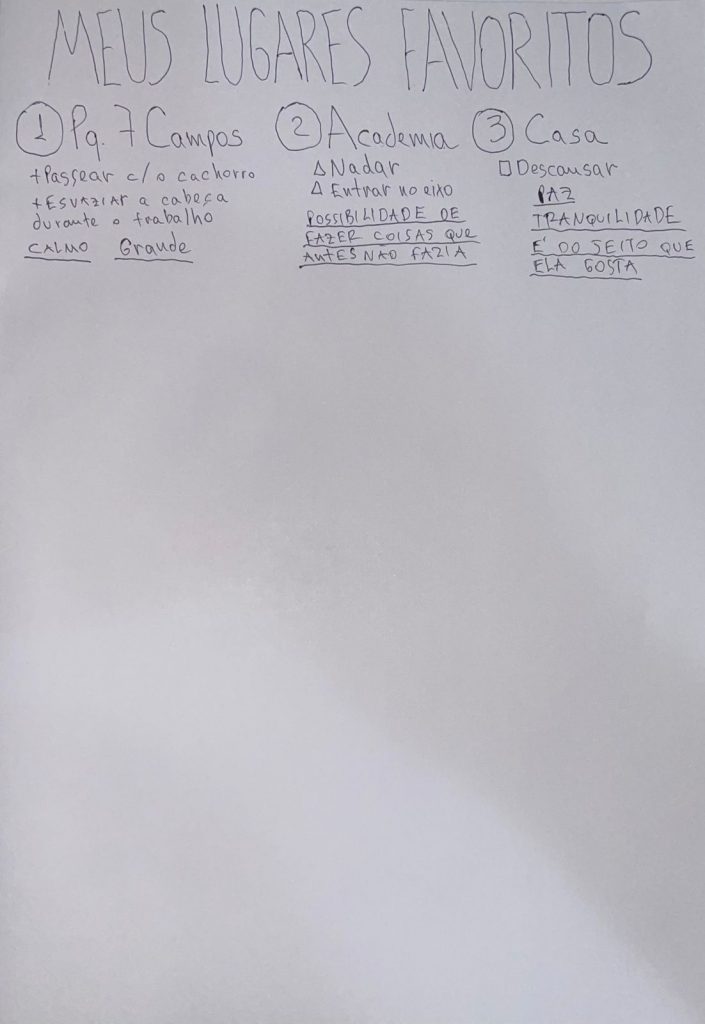 MEUS LUGARES FAVORITOS
1 Pq. 7 Campos
+Passear c/o cachorro
+ESVAZIAR a cabeça
durante o trabalho
CALMO Grande
2 Academia
△ Nadar
△ Entrar no eixo
POSSIBILIDADE DE
FAZER COISAS QUE
ANTES NAO FAZIA
3 Casa
□ Descansar
PAZ
TRANQUILIDADE
E' DO JEITO QUE
ELA GOSTA